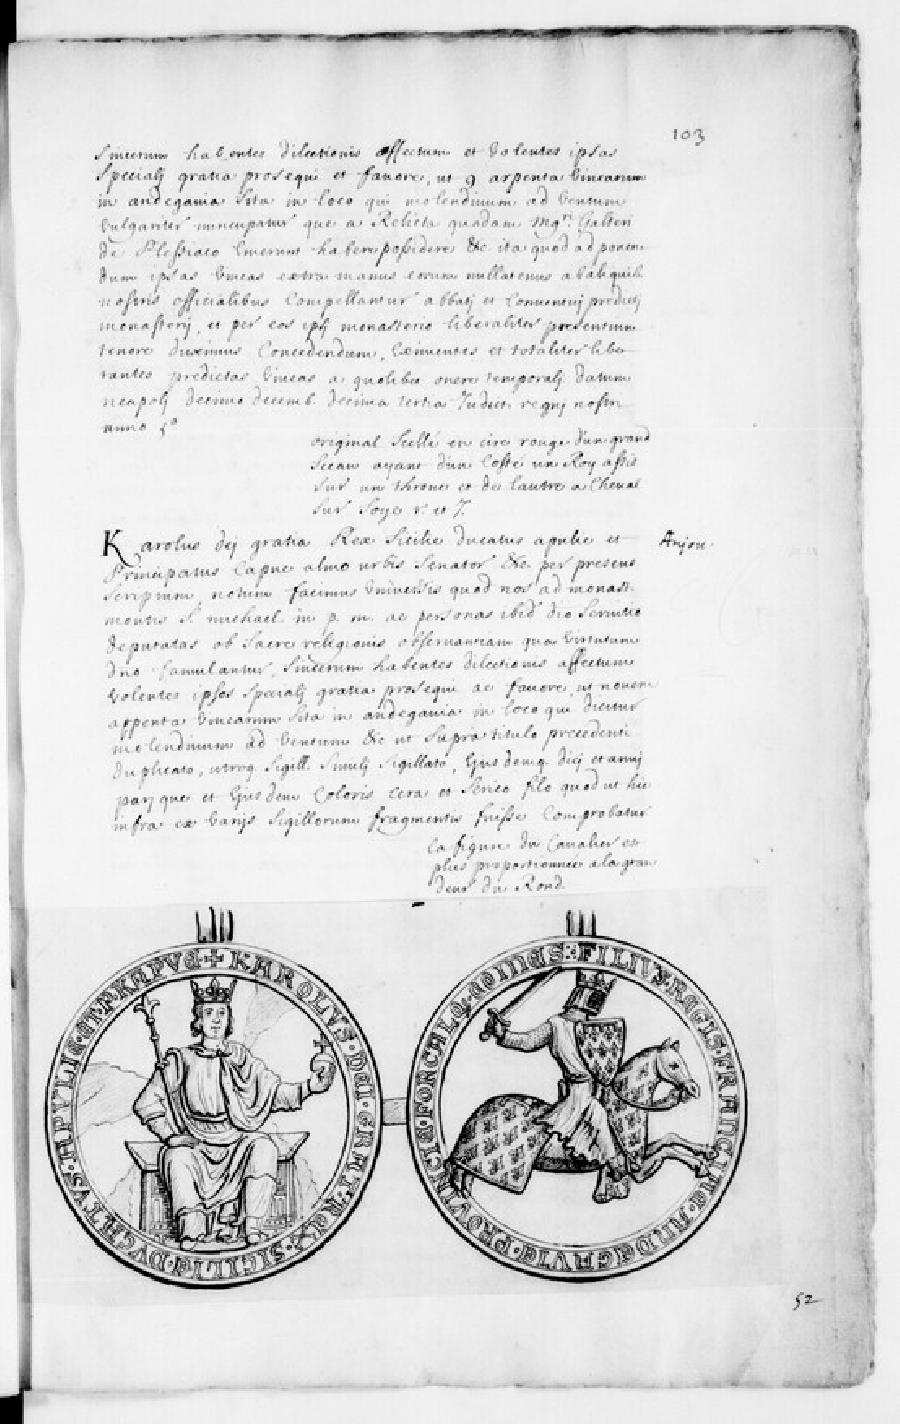 103
sincerum habentes dilectionis affectum et volentes ipsas
specialj gratia prosequi et favore, ut 9 arpenta vinearum
in andegavia sita in loco qui molendinum ad ventum
vulgariter nuncupatur que a Relicta quadam Mgri. Galteri
de Plessiaco emerunt habere possidere &c ita quod ad ponen
dum ipsas vineas extra manus eorum nullatenus ab aliquib.
nostris officialibus compellantur abbatj et conventuj predictj
monasterij, et per eos ipsj monasterio liberaliter presentium
tenore duximus concedendum, eximentes et totaliter libe
rantes predictas vineas a quolibet onere temporalj. datum
neapolj decimo decemb. decima tertia Indict. regnj nostri
anno 5o
original scellé en cire rouge d'un grand
sceau ayant d'un costé un Roy assis
sur un throne et de lautre a cheval
sur soye r. et J.
Karolus dej gratia Rex Sicilie ducatus apulie et
Anjou.
Principatus capue alme urbis Senator &c. per presens
scriptum, notum facimus universis quod nos ad monast.
montis S. michael. in p. m. ac personas ibid. dio servitio
deputatas ob sacre religionis observantiam qua virtutum
dno famulantur, sincerum habentes dilectionis affectum
volentes ipsos specialj gratia prosequi ac favore, ut novem
arpenta vinearum sita in andegavia in loco qui dicitur
molendinum ad ventum &c ut supra titulo precedenti
duplicato, utroq. sigill. simili sigillato, ejusdemq. diej et annj
parj que et ejusdem coloris cera et serico filo quod ut hic
infra ex varijs sigillorum fragmentis fuisse comprobatur
la figure du Cavalier est
plus proportionnee a la gran
deur du Rond.
+ KAROLVS · DEI · GRAT · REX · SICILIE · DVCATVS · APVLIE · ET · P · KAPVE
FILIVS · REGIS · FRANCIE · ANDEGAVIE · PROVINCIE · FORCALQ · COMES
52